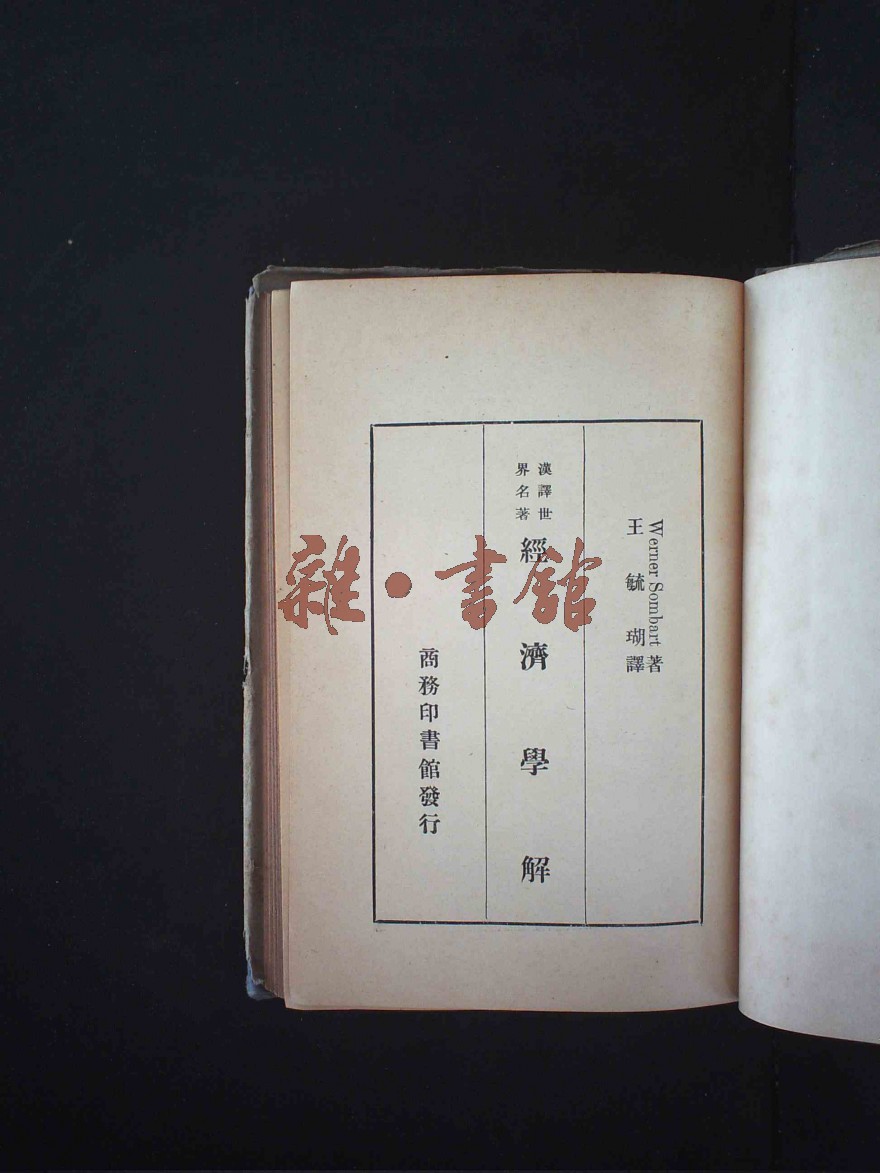 Werner Sombart 著
王毓瑚譯
漢譯世
界名著
經濟學解
商務印書館發行
雜·書館